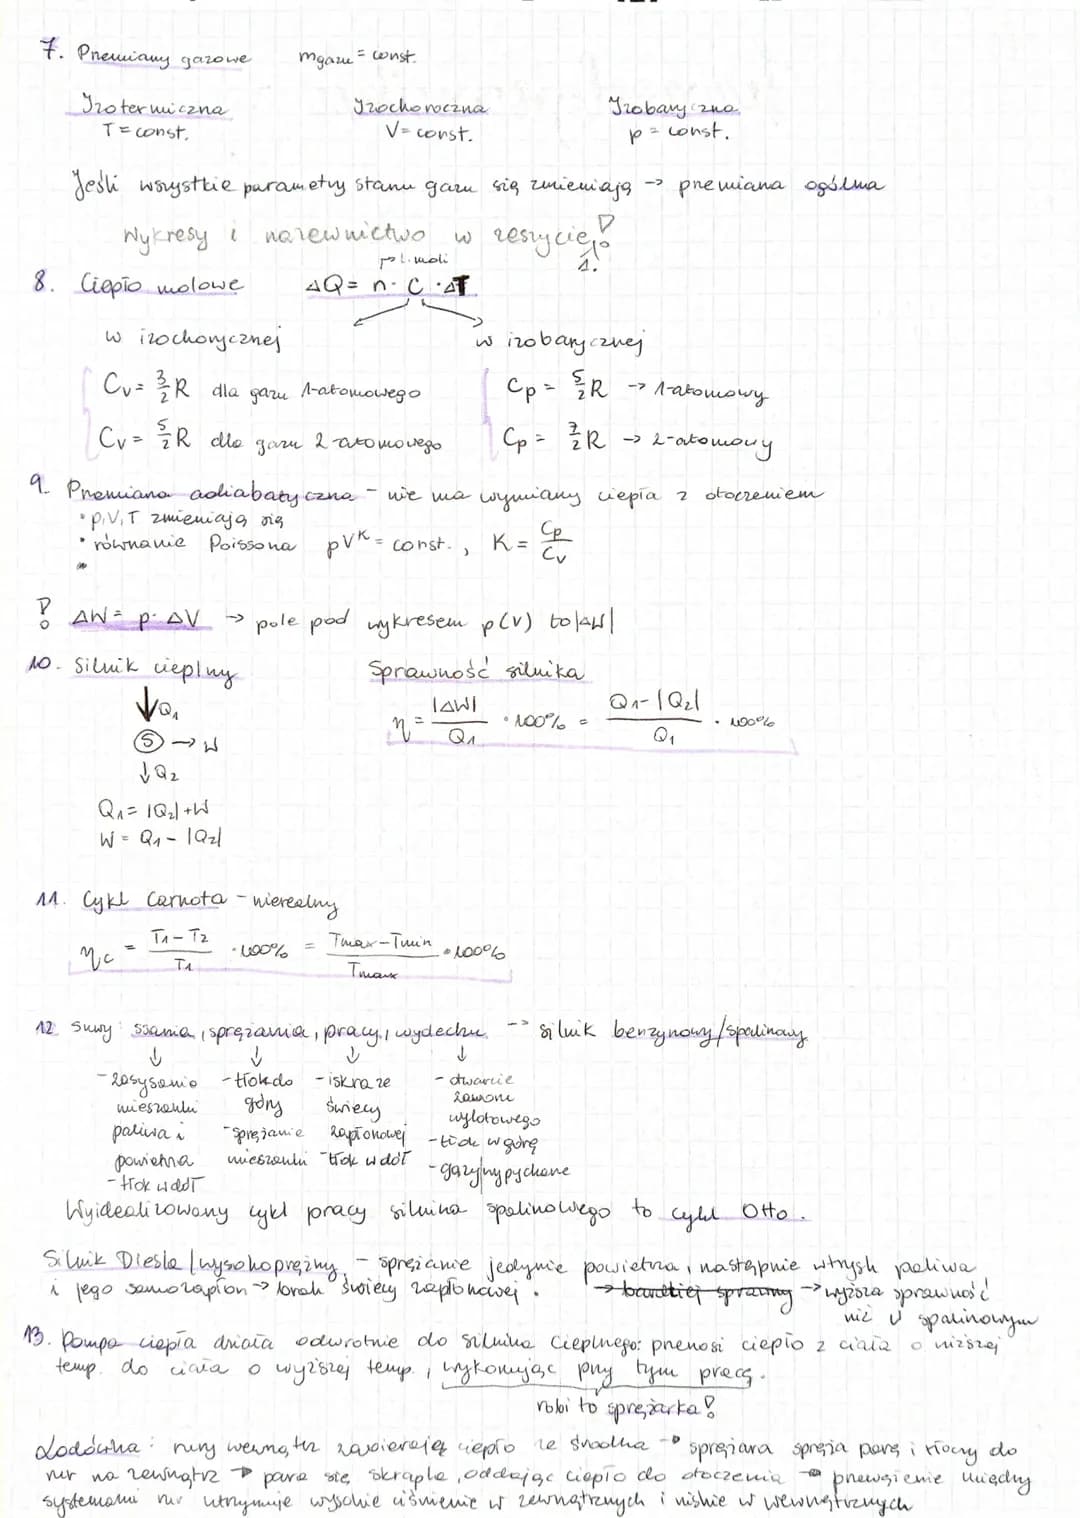 7. Przemiany gazowe mgazu = const.
Izotermiczna Izochoryczna Izobaryczna
T = const. V = const. p = const.
Jeśli wszystkie parametry stanu gazu się zmieniają → przemiana ogólna
Wykresy i nazewnictwo w zeszycie!
l. moli 1.
8. Ciepło molowe ΔQ = n · C · ΔT
w izochorycznej w izobarycznej
Cv = 3/2 R dla gazu 1-atomowego Cp = 5/2 R → 1-atomowy
Cv = 5/2 R dla gazu 2-atomowego Cp = 7/2 R → 2-atomowy
9. Przemiana adiabatyczna - nie ma wymiany ciepła z otoczeniem
• p,V,T zmieniają się
• równanie Poissona pV^K = const., K = Cp/Cv
! ΔW = p · ΔV → pole pod wykresem p(V) to |ΔW|
10. Silnik cieplny Sprawność silnika
↓Q1
η = |ΔW|/Q1 · 100% = Q1-|Q2|/Q1 · 100%
S → W
↓Q2
Q1 = |Q2| + W
W = Q1 - |Q2|
11. Cykl Carnota - nierealny
ηc = T1-T2/T1 · 100% = Tmax-Tmin/Tmax · 100%
12. Suwy: ssania, sprężania, pracy, wydechu → silnik benzynowy/spalinowy
↓ ↓ ↓ ↓
- zasysanie - tłok do - iskra ze - otwarcie
mieszanki góry świecy zaworu
paliwa i - sprężanie zapłonowej wylotowego
powietrza mieszanki - tłok w dół - tłok w górę
- tłok w dół - gazy wypychane
Wyidealizowany cykl pracy silnika spalinowego to cykl Otto.
Silnik Diesla / wysokoprężny - sprężanie jedynie powietrza, następnie wtrysk paliwa
i jego samozapłon → brak świecy zapłonowej. → bardziej sprawny → wyższa sprawność
niż w spalinowym
13. Pompa ciepła działa odwrotnie do silnika cieplnego: przenosi ciepło z ciała o niższej
temp. do ciała o wyższej temp., wykonując przy tym pracę.
robi to sprężarka!
Lodówka: rury wewnątrz zawierają ciepło ze środka → spręzara spręża parę i tłoczy do
rur na zewnątrz → para się skrapla, oddając ciepło do otoczenia → przewężenie między
systemami rur utrzymuje wysokie ciśnienie w zewnątrznych i niskie w wewnątrznych